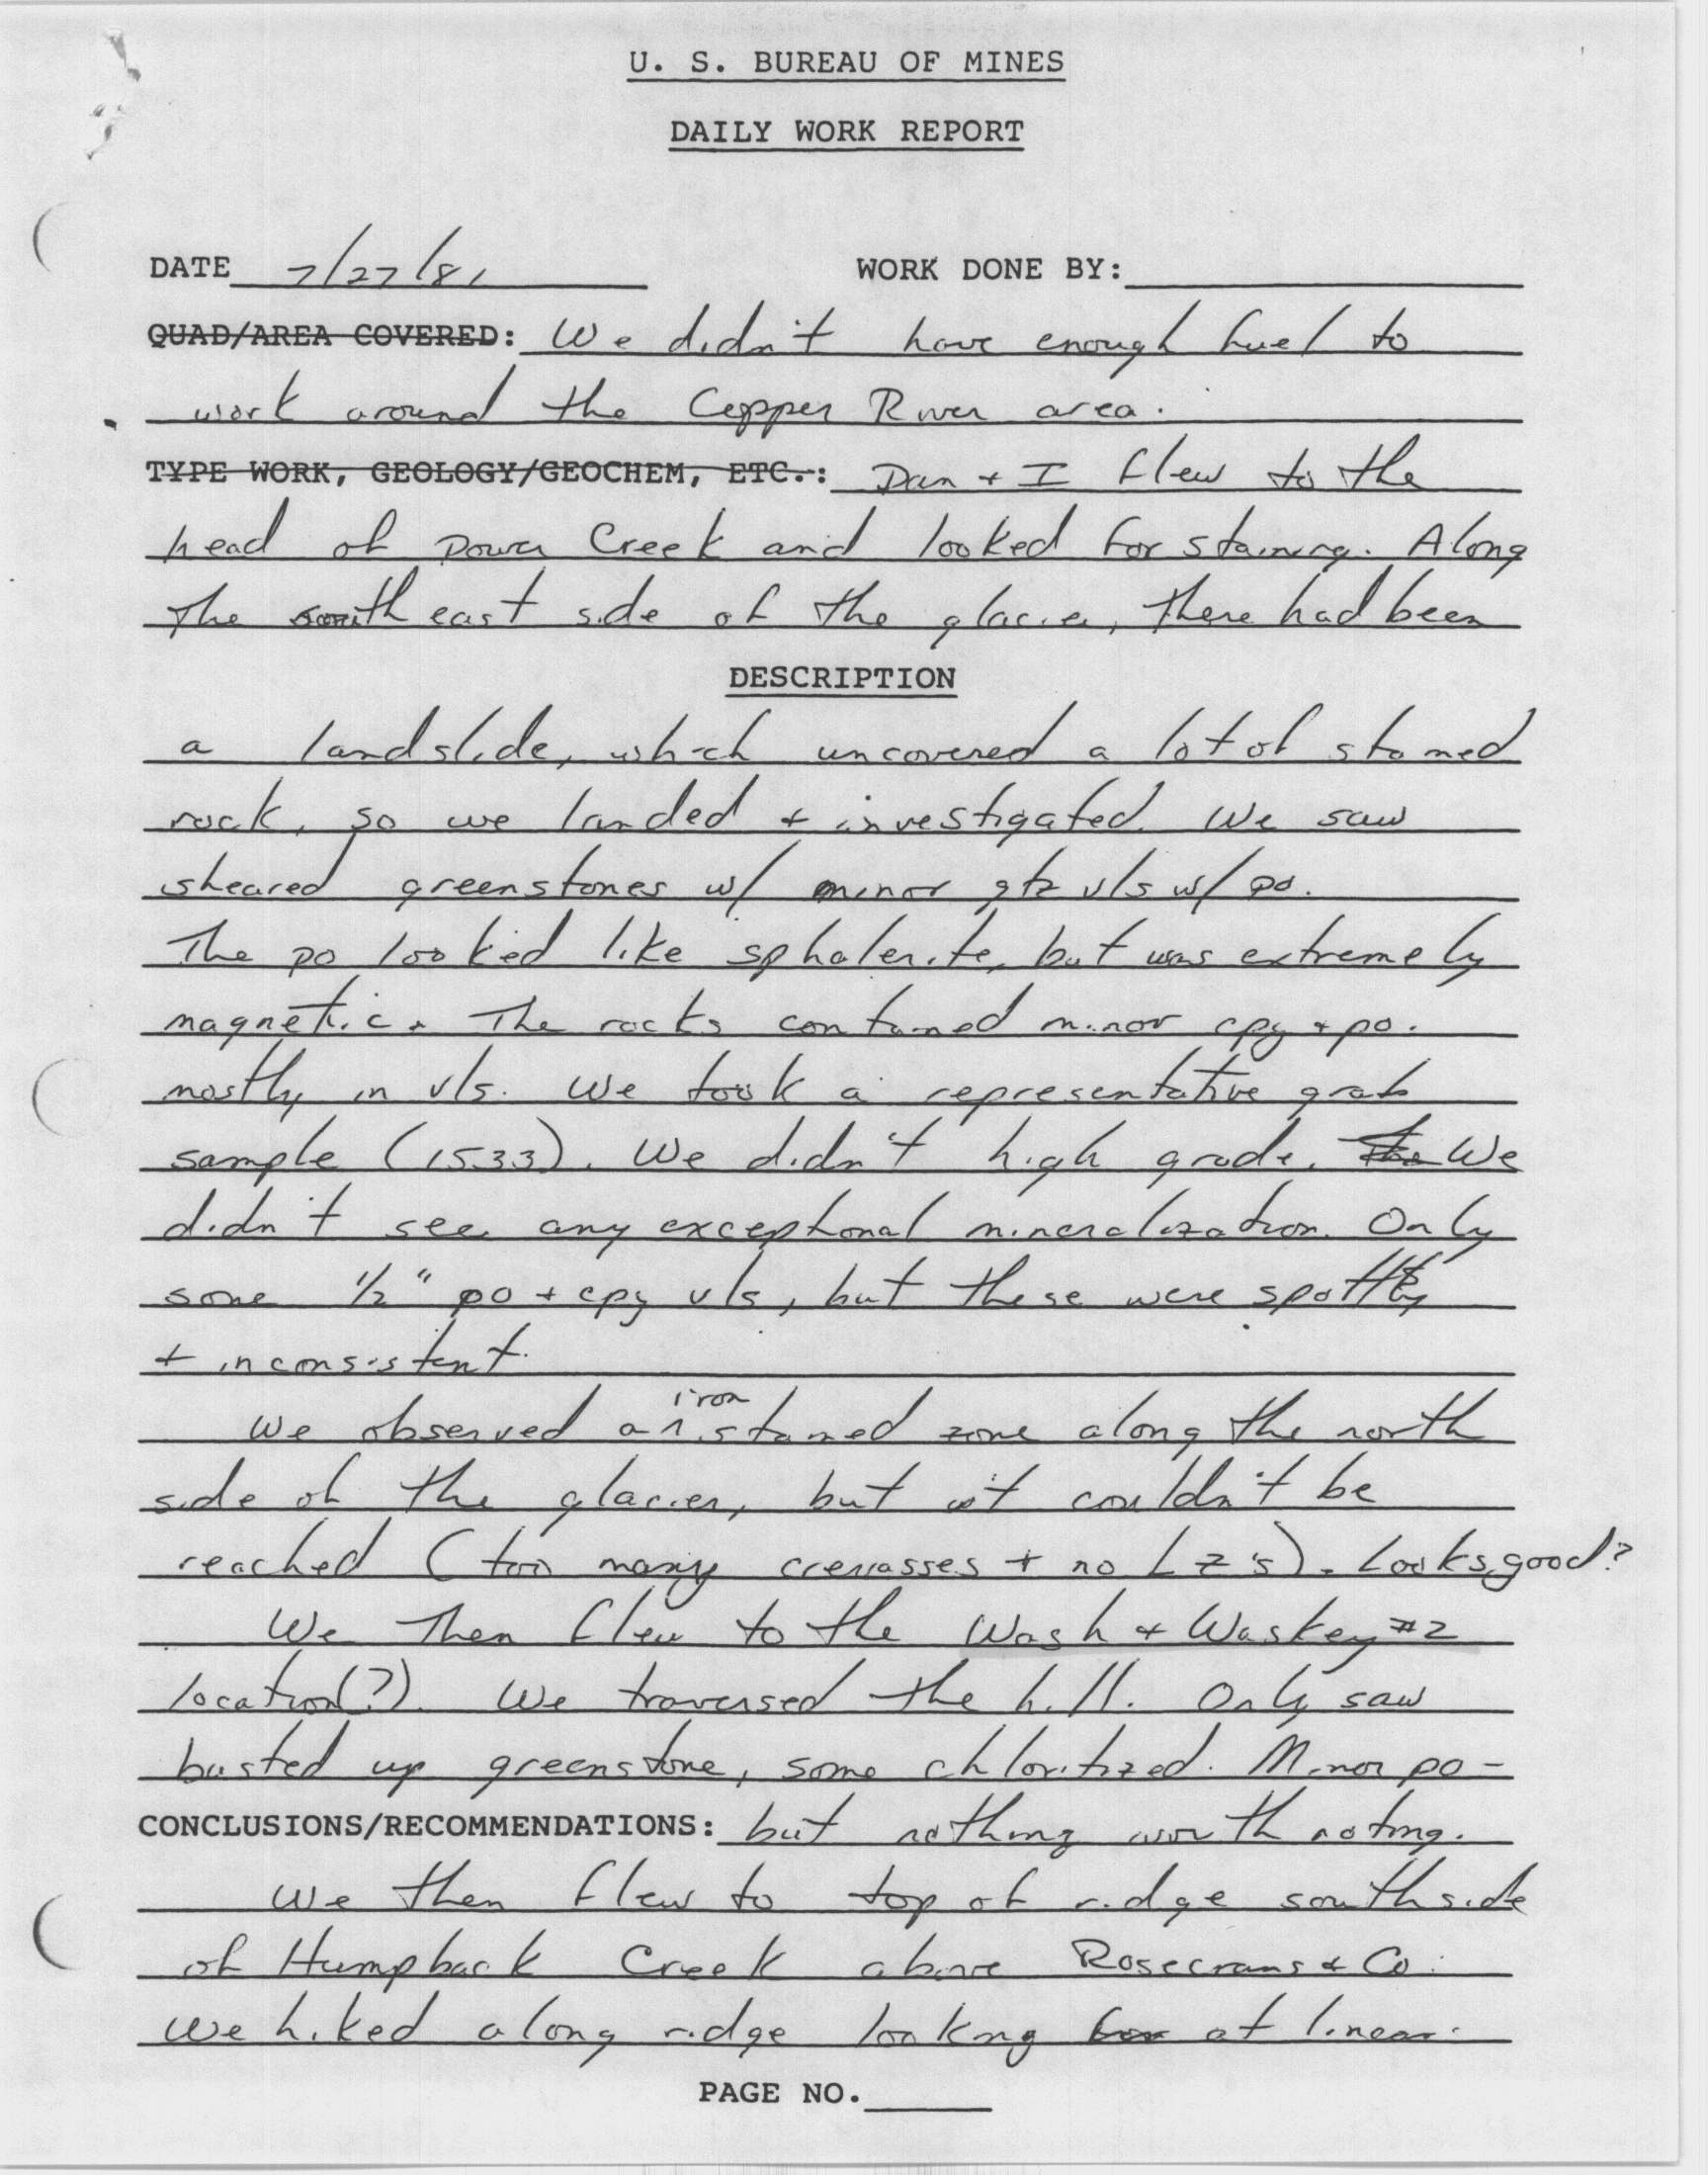 U. S. BUREAU OF MINES
DAILY WORK REPORT
DATE 7/27/81 WORK DONE BY:
QUAD/AREA COVERED: We didn't have enough fuel to
work around the Copper River area.
TYPE WORK, GEOLOGY/GEOCHEM, ETC.: Dan + I flew to the
head of Power Creek and looked for staining. Along
the south east side of the glacier, there had been
DESCRIPTION
a landslide, which uncovered a lot of stained
rock, so we landed + investigated. We saw
sheared greenstones w/ minor qtz vls w/ po.
The po looked like sphalerite, but was extremely
magnetic. The rocks contained minor cpy + po.
mostly in vls. We took a representative grab
sample (1533). We didn't high grade. The We
didn't see any exceptional mineralization. Only
some 1/2" po + cpy vls, but these were spotty
+ inconsistent.
We observed an iron stained zone along the north
side of the glacier, but it couldn't be
reached (too many crevasses + no LZ's). Looks good?
We then flew to the Wash + Waskey #2
location(?). We traversed the hill. Only saw
busted up greenstone, some chloritized. Minor po -
CONCLUSIONS/RECOMMENDATIONS: but nothing worth noting.
We then flew to top of ridge south side
of Humpback Creek above Rosecrans & Co.
We hiked along ridge looking for at linear.
PAGE NO.